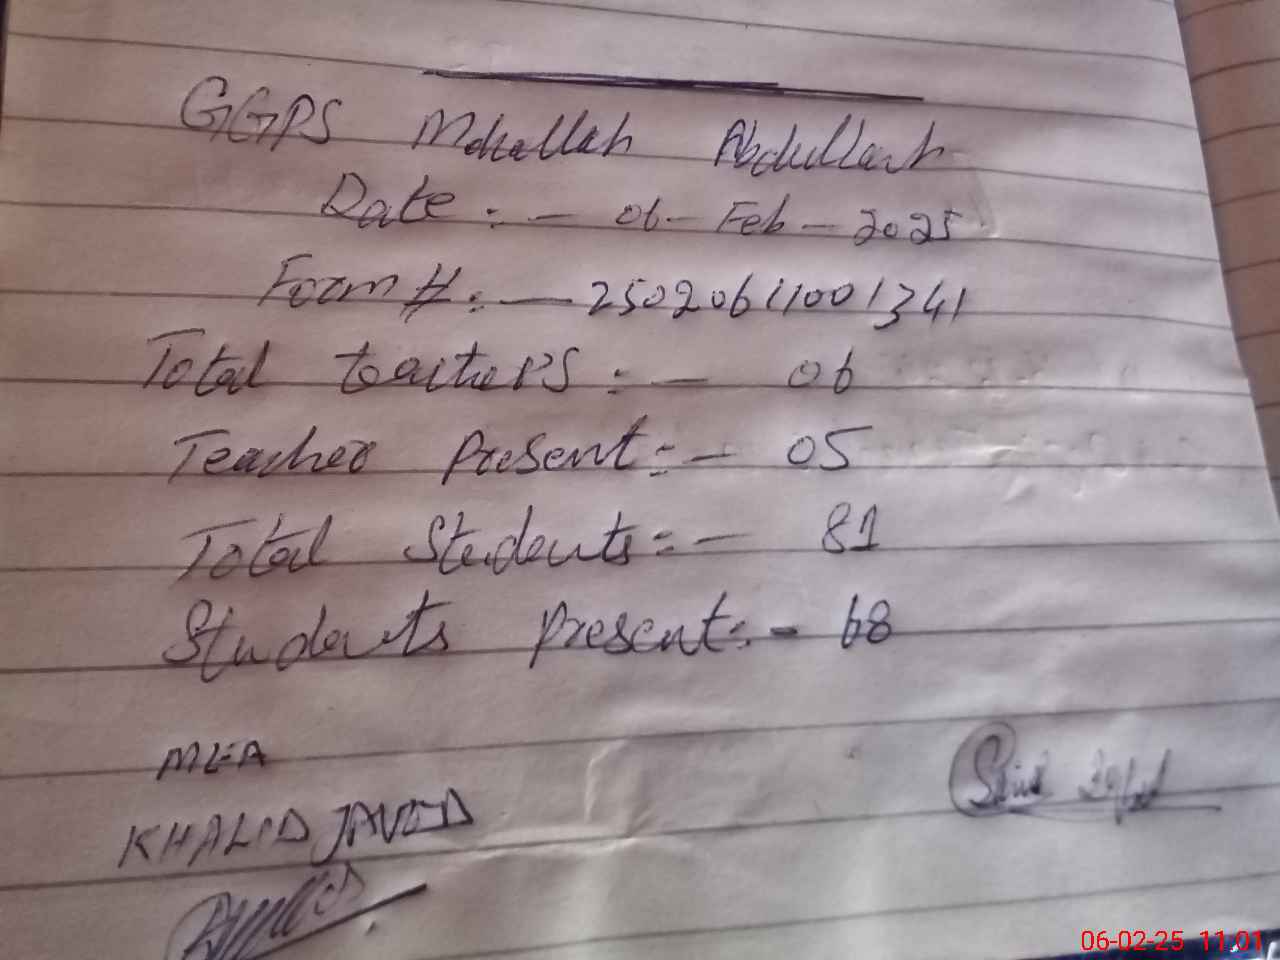 GGPS Mohallah Abdullah
Date :- 06-Feb-2025
Form #:- 25020611001341
Total teachers :- 06
Teacher Present:- 05
Total Students:- 81
Students Present:- 68
MEA
KHALID JAVED
06-02-25 11:01